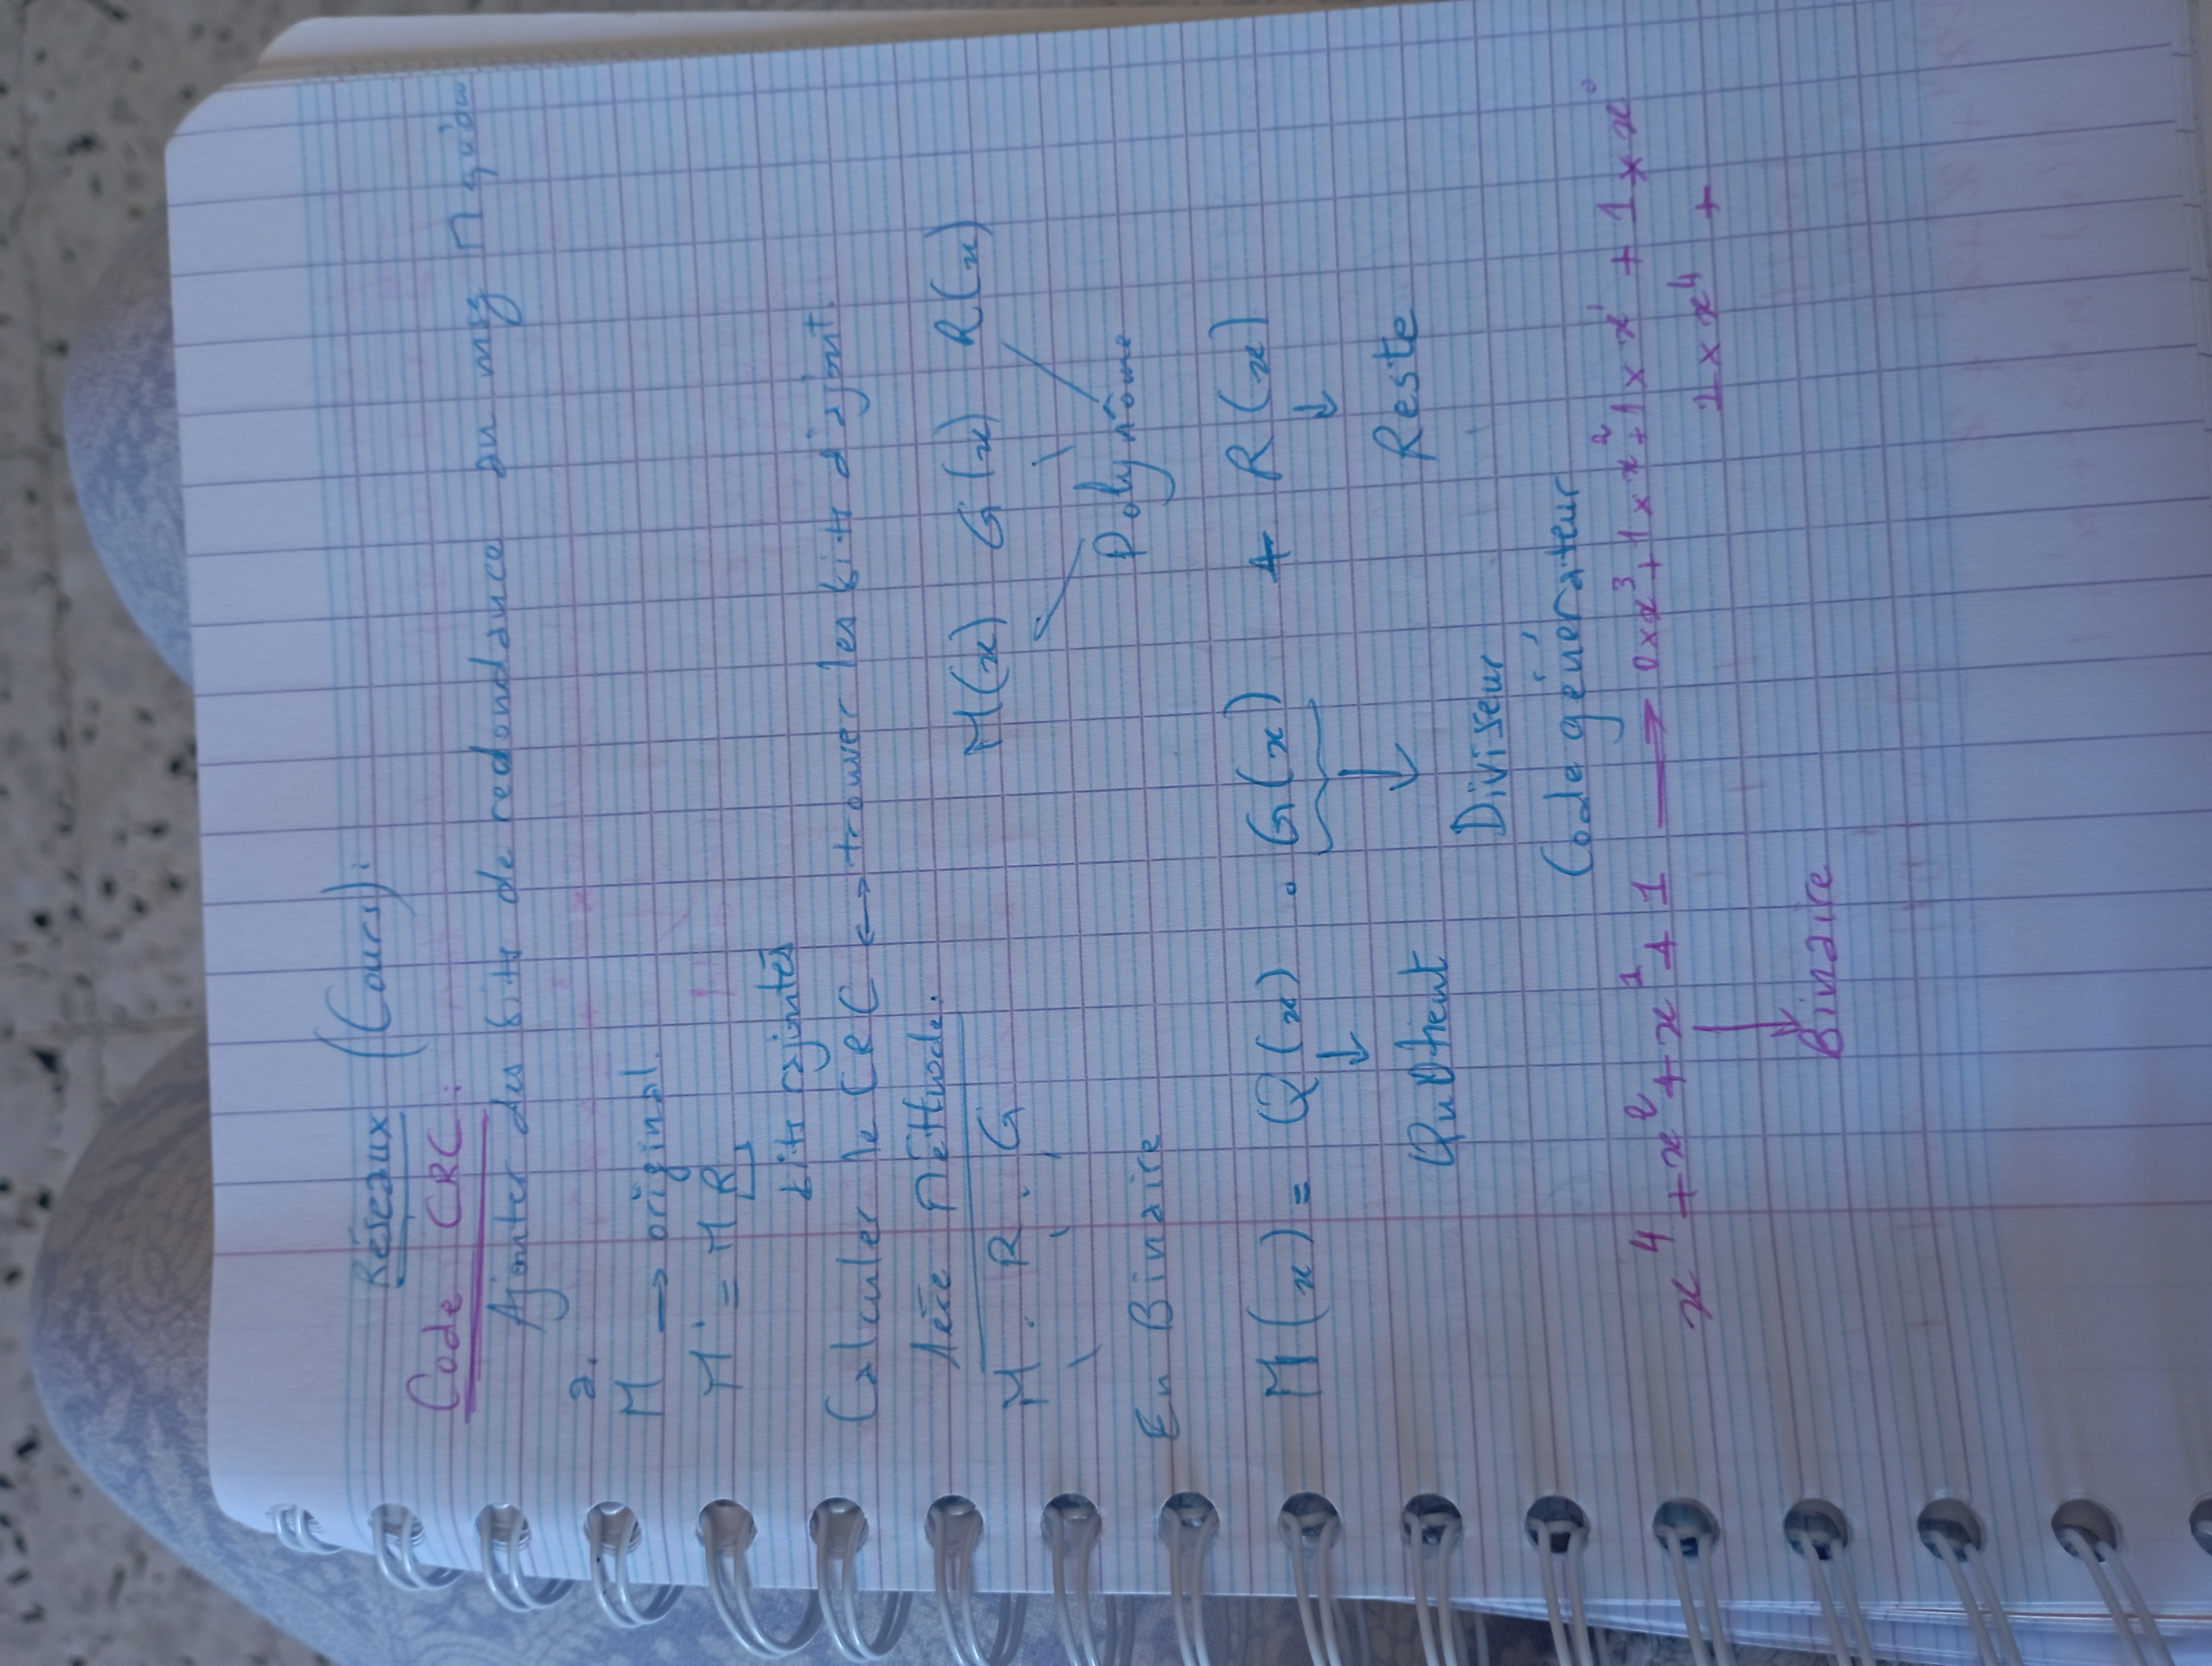 Réseaux (Cours):
Code CRC:
Ajouter des bits de redondance au msg M
a.
M → original.
M' = M R
bits rajoutés
Calculer le CRC ↔ trouver les bits d'ajout.
1ère Méthode:
M . R . G M(x) G(x) R(x)
En Binaire Polynôme
M(x) = Q(x) . G(x) + R(x)
Quotient Diviseur Reste
Code générateur
x⁴ + x² + x¹ + 1 → 0xx³ + 1 x x² + 1 x x¹ + 1 x x⁰
1 x x⁴ +
Binaire